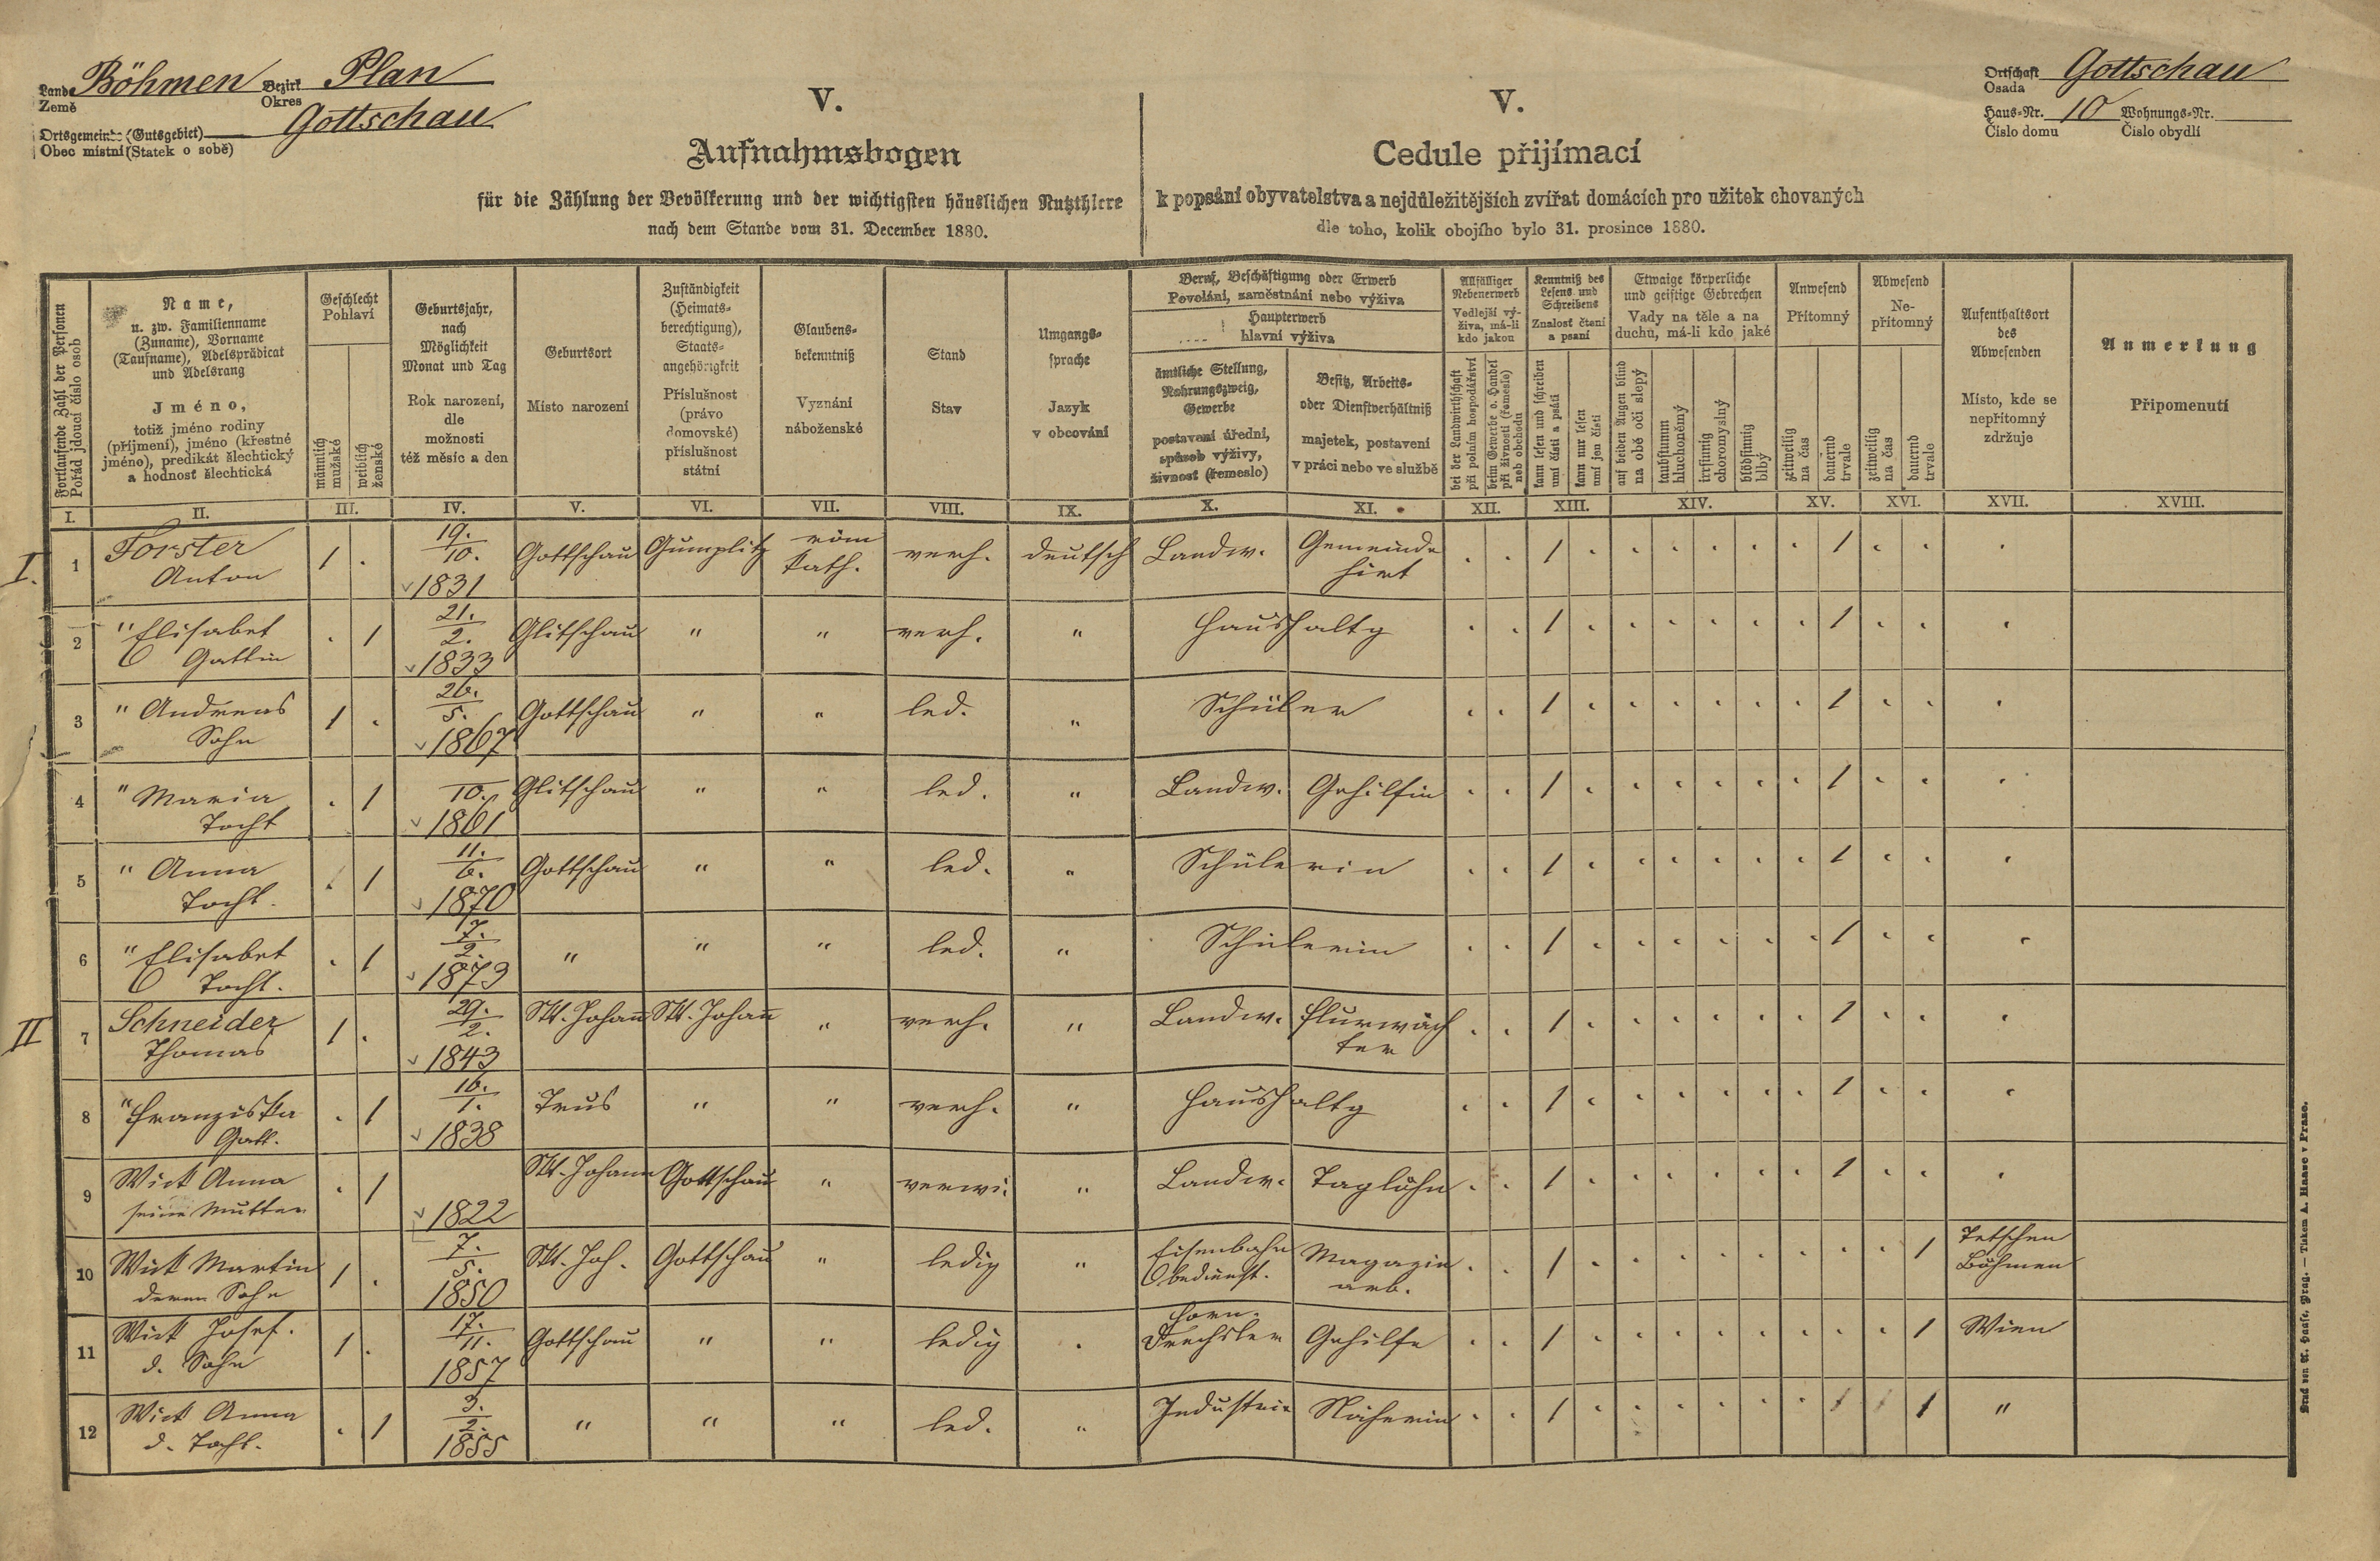 Lande Böhmen Bezirk Plan
Země Okres
Ortsgemeinde (Gutsgebiet) Gottschau
Obec místní (Statek o sobě)
Ortschaft Gottschau
Osada
Haus-Nr. 10 Wohnungs-Nr.
Číslo domu Číslo obydlí
V.
Aufnahmsbogen
für die Zählung der Bevölkerung und der wichtigsten häuslichen Nutzthiere
nach dem Stande vom 31. December 1880.
V.
Cedule přijímací
k popsání obyvatelstva a nejdůležitějších zvířat domácích pro užitek chovaných
dle toho, kolik obojího bylo 31. prosince 1880.
Fortlaufende Zahl der Personen
Pořád jdoucí číslo osob
Name,
u. zw. Familienname
(Zuname), Vorname
(Taufname), Adelsprädicat
und Adelsrang
Jméno,
totiž jméno rodiny
(příjmení), jméno (křestné
jméno), predikát šlechtický
a hodnosť šlechtická
Geschlecht
Pohlaví
männlich
mužské
weiblich
ženské
Geburtsjahr,
nach
Möglichkeit
Monat und Tag
Rok narození,
dle
možnosti
též měsíc a den
Geburtsort
Místo narození
Zuständigkeit
(Heimats-
berechtigung),
Staats-
angehörigkeit
Příslušnost
(právo
domovské)
příslušnost
státní
Glaubens-
bekenntniß
Vyznání
náboženské
Stand
Stav
Umgangs-
sprache
Jazyk
v obcování
Beruf, Beschäftigung oder Erwerb
Povolání, zaměstnání nebo výživa
Haupterwerb
hlavní výživa
ämtliche Stellung,
Nahrungszweig,
Gewerbe
postavení úřední,
spůsob výživy,
živnost (řemeslo)
Besitz, Arbeits-
oder Dienstverhältniß
majetek, postavení
v práci nebo ve službě
Allfälliger
Nebenerwerb
Vedlejší vý-
živa, má-li
kdo jakou
bei der Landwirthschaft
při polním hospodářství
beim Gewerbe o. Handel
při živnosti (řemesle)
neb obchodu
Kenntniß des
Lesens und
Schreibens
Znalosť čtení
a psaní
kann lesen und schreiben
umí čísti a psáti
kann nur lesen
umí jen čísti
Etwaige körperliche
und geistige Gebrechen
Vady na těle a na
duchu, má-li kdo jaké
auf beiden Augen blind
na obě oči slepý
taubstumm
hluchoněmý
irrsinnig
choromyslný
blödsinnig
blbý
Anwesend
Přítomný
zeitweilig
na čas
dauernd
trvale
Abwesend
Ne-
přítomný
zeitweilig
na čas
dauernd
trvale
Aufenthaltsort
des
Abwesenden
Místo, kde se
nepřítomný
zdržuje
Anmerkung
Připomenutí
I. II. III. IV. V. VI. VII. VIII. IX. X. XI. XII. XIII. XIV. XV. XVI. XVII. XVIII.
I. 1 Forster Anton 1 . 19./10. 1831 Gottschau Gumplitz röm kath. verh. deutsch Landw. Gemeinde hirt . . 1 . . . . . . 1 . . .
2 " Elisabet Gattin . 1 21./2. 1833 Glitschau " " verh. " Haushaltg . . 1 . . . . . . 1 . . .
3 " Andreas Sohn 1 . 26./5. 1867 Gottschau " " led. " Schüler . . 1 . . . . . . 1 . . .
4 " Maria Tocht . 1 10. 1861 Glitschau " " led. " Landw. Gehilfin . . 1 . . . . . . 1 . . .
5 " Anna Tocht. . 1 11./6. 1870 Gottschau " " led. " Schülerin . . 1 . . . . . . 1 . . .
6 " Elisabet Tocht. . 1 7./2. 1873 " " " led. " Schülerin . . 1 . . . . . . 1 . . .
II 7 Schneider Thomas 1 . 29./2. 1843 Skt. Johann Skt. Johann " verh. " Landw. Flurwäch ter . . 1 . . . . . . 1 . . .
8 " Franziska Gatt. . 1 16./1. 1838 Trus " " verh. " Haushaltg . . 1 . . . . . . 1 . . .
9 Wirk Anna seine Mutter . 1 1822 Skt. Johann Gottschau " verwi. " Landw. Taglöhn . . 1 . . . . . . 1 . . .
10 Wirk Martin deren Sohn 1 . 7./5. 1850 Skt. Joh. Gottschau " ledig " Eisenbahn Magazin arb. . . 1 . . . . . . . . 1 Tetschen Böhmen
11 Wirk Josef. d. Sohn 1 . 17./11. 1857 Gottschau " " ledig . Horn- Drechsler Gehilfe . . 1 . . . . . . . . 1 Wien
12 Wirk Anna d. Tocht. . 1 3./2. 1855 " " " led. " Industrie Näherin . . 1 . . . . . . 1 1 1 "
Druck von A. Haase, Prag. — Tiskem A. Haase v Praze.